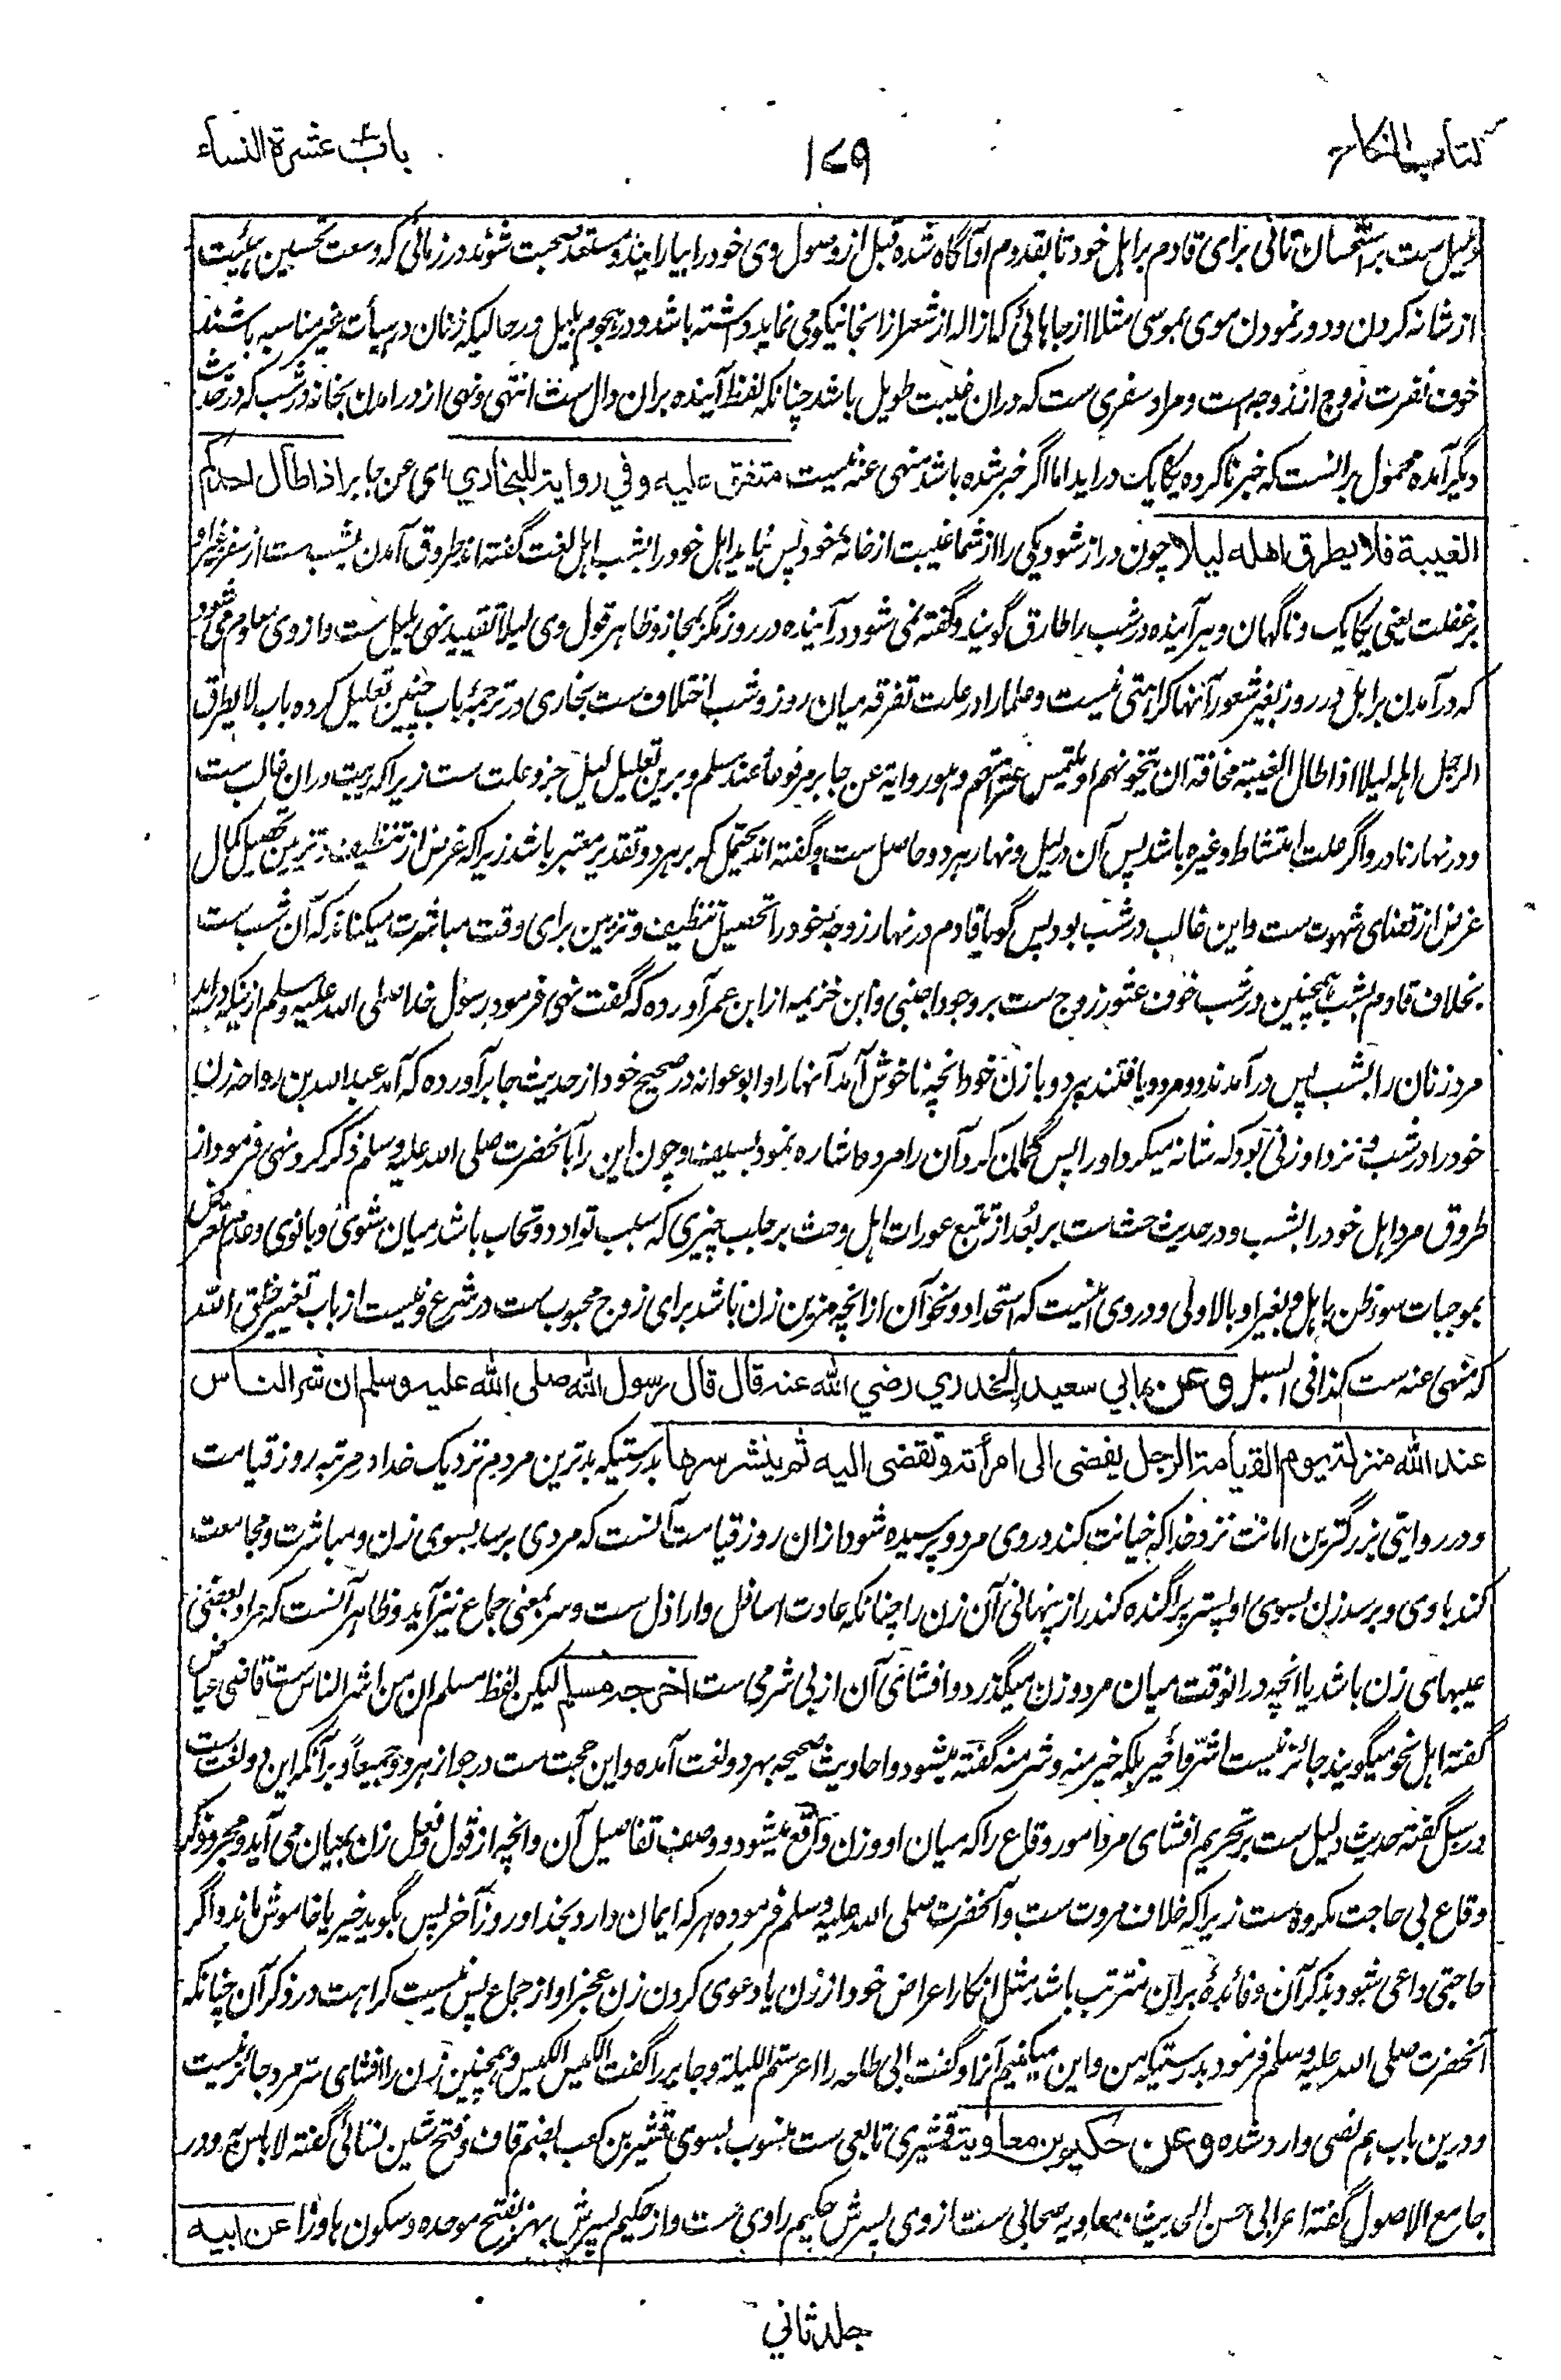 کتاب النکاح
۱۷۹
باب عشرة النساء
دلیل ست بر استحسان تانی برای قادم بر اہل خود تا بقدوم او آگاه شده قبل از وصول وی خود را بیارایند و مستعد صحبت شوند در زمانی که وسعت تحسین ہیئت
از شانه کردن و دور نمودن موی بموسی مثلا از جاہائی که ازاله از شعر از انجا نیکو می نماید داشته باشد و در ہجوم بلیل در حالیکه زنان در ہیأت غیر مناسبه باشند
خوف نفرت زوج از زوجه ست و مراد سفری ست که دران غیبت طویل باشد چنانکه لفظ آینده بران دال ست انتہی و نہی از درامدن بخانه در شب که در حدیث
دیگر آمده محمول بر انست که خبر ناکرده یکایک در اید اما اگر خبر شده باشد منہی عنه نیست متفق علیه وفي رواية للبخاري ای عن جابر اذا اطال احدکم
الغیبة فلا یطرق اهله لیلا چون دراز شود یکی را از شما غیبت از خانۂ خود پس نیاید اہل خود را بشب اہل لغت گفته اند طروق آمدن بشب ست از سفر و غیر او
بر غفلت یعنی یکایک و ناگہان و ہر آینده در شب را طارق گویند و گفته نمی شود در آینده در روز مگر بمجاز و ظاہر قول وی لیلا تقیید نہی بلیل ست و از وی معلوم می شود
که در آمدن بر اہل در روز بغیر شعور آنہا کراہتی نیست و علما را در علت تفرقه میان روز و شب اختلاف ست بخاری در ترجمۂ باب چنین تعلیل کرده باب لا یطرق
الرجل اہله لیلا اذا طال الغیبة مخافة ان یتخونہم او یلتمس عثراتہم و ہو روایة عن جابر مرفوعاً عند مسلم و برین تعلیل لیل جزو علت ست زیرا که ریبت دران غالب ست
و در نہار نادر و اگر علت امتشاط و غیره باشد پس آن در لیل و نہار ہر دو حاصل ست و گفته اند یحتمل که بر ہر دو تقدیر معتبر باشد زیرا که غرض از تنظیف و تزیین تحصیل کمال
غرض از قضای شہوت ست و این غالب در شب بود پس گویا قادم در نہار زوجۂ خود را تحصیل تنظیف و تزیین برای وقت مباشرت میکناند که آن شب ست
بخلاف قادم بشب ہمچنین در شب خوف عثور زوج ست بر وجود اجنبی و ابن خزیمه از ابن عمر آورده که گفت نہی فرمود رسول خدا صلی الله علیه وسلم از نیکه در اید
مرد زنان را بشب پس در آمدند دو مرد و یافتند ہر دو با زن خود انچه ناخوش آمد آنہا را و ابو عوانه در صحیح خود از حدیث جابر آورده که آمد عبدالله بن رواحه زن
خود را در شب و نزد او زنی بود که شانه میکرد او را پس گمان کرد آن را مرد و اشاره نمود بسیف و چون این را بآنحضرت صلی الله علیه وسلم ذکر کرد نہی فرمود از
طروق مرد اہل خود را بشب و در حدیث حث ست بر بعُد از تتبع عورات اہل و حث بر جلب چیزی که سبب تواد و تحاب باشد میان شوی و بانوی و عدم تعرض
بموجبات سوء ظن باہل و بغیر او بالاولی و در وی انیست که استحداد و نحو آن از انچه مزین زن باشد برای زوج محبوب ست در شرع و نیست از باب تغییر خلق الله
که منہی عنه ست کذا فی السبل وعن ابي سعيد الخدري رضي الله عنه قال قال رسول الله صلى الله عليه وسلم ان شر الناس
عند الله منزلة يوم القيامة الرجل يفضى الى امرأته وتفضى اليه ثم ينشر سرها بدرستیکه بدترین مردم نزدیک خدا در مرتبه روز قیامت
و در روایتی بزرگترین امانت نزد خدا که خیانت کند در وی مرد و پرسیده شود ازان روز قیامت آنست که مردی برسد بسوی زن و مباشرت و مجامعت
کند باوی و برسد زن بسوی او پستر پراگنده کند راز پنہانی آن زن را چنانکه عادت اسافل و اراذل ست و سر بمعنی جماع نیز آید و ظاہر آنست که مراد بعضی
عیبہای زن باشد یا انچه درانوقت میان مرد و زن میگذرد و افشای آن از بی شرمی ست اخرجه مسلم لیکن لفظ مسلم ان من اشر الناس ست قاضی عیاض
گفته اہل نحو میگویند جائز نیست اشر و أخیر بلکه خیر منه و شر منه گفته میشود و احادیث صحیحه بہر دو لغت آمده و این حجت ست در جواز ہر دو جمیعاً و بر آنکه این دو لغت ست
در سبل گفته حدیث دلیل ست بر تحریم افشای مرد امور وقاع را که میان او و زن واقع میشود و وصف تفاصیل آن و انچه از قول و فعل زن بمیان می آید و مجرد ذکر
وقاع بی حاجت مکروه ست زیرا که خلاف مروت ست و آنحضرت صلی الله علیه وسلم فرموده ہر که ایمان دارد بخدا و روز آخر پس بگوید خیر یا خاموش ماند و اگر
حاجتی داعی شود بذکر آن و فائدۂ بران مترتب باشد مثل انکار اعراض خود از زن یا دعوی کردن زن عجز او از جماع پس نیست کراہت در ذکر آن چنانکه
آنحضرت صلی الله علیه وسلم فرمود بدرستیکه من و این میکنیم آنرا و گفت ابی طلحه را اعرستم اللیلة و جابر را گفت الکیس الکیس و ہمچنین زن را افشای سر مرد جائز نیست
و درین باب ہم نصی وارد شده وعن حكيم بن معاوية قشیری تابعی ست منسوب بسوی قشیر بن کعب بضم قاف و فتح شین نسائی گفته لا باس به و در
جامع الاصول گفته اعرابی حسن الحدیث و معاویه صحابی ست از وی پسرش حکیم راوی ست و از حکیم پسرش بہز بفتح موحده و سکون ہا و زا عن ابيه
جلد ثاني